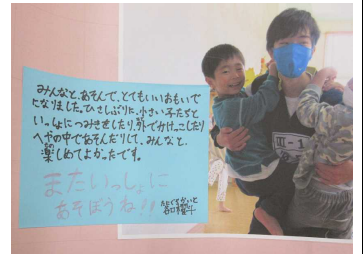 みんなと、あそんで、とてもいいおもいで
になりました。ひさしぶりに、小さい子たちと
いっしょにつみきをしたり、外でかけっこしたり
へやの中であそんだりして、みんなと、
楽しめてよかったです。
またいっしょに
あそぼうね!!
III-1